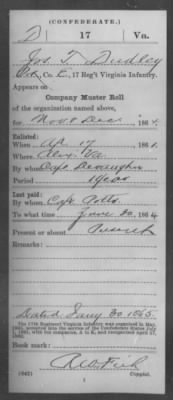 (CONFEDERATE.)
D 17 Va.
Jos. T. Dudley
Co. E, 17 Reg't Virginia Infantry.
Appears on
Company Muster Roll
of the organization named above,
for Nov & Dec, 1864.
Enlisted:
When Ap. 17, 1861.
Where Alex. Va.
By whom Capt. Devaughn
Period 1 year
Last paid:
By whom Capt. Potts
To what time June 30, 1864
Present or absent Present
Remarks:
Dated Jany 30 1865.
The 17th Regiment Virginia Infantry was organized in
Book mark:
(642) Copyist.